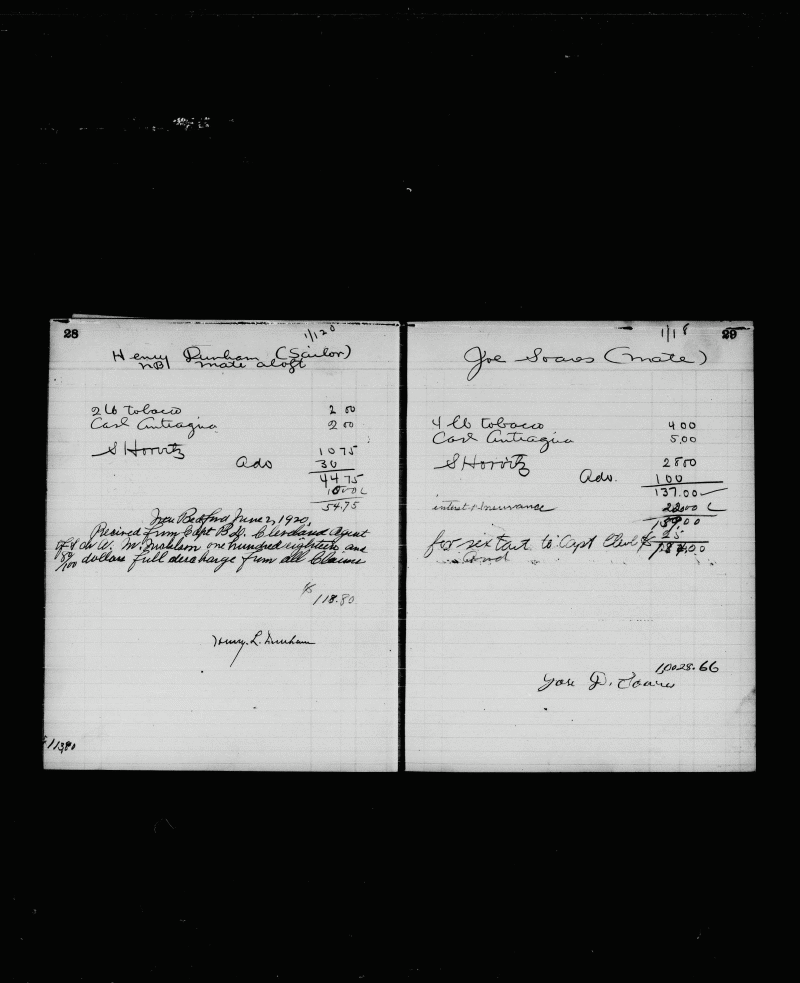 28
1/120
Henry Dunham (Sailor)
NB/ mate aloft
2 lb tobacco 2 00
Cash Anteagua 2 00
S Horvitz 10 75
Ads 30
44 75
10 00 L
54.75
New Bedford June 2, 1920,
Recived from Capt B.D. Cleveland Agent
of Sch W. M. one hundred eighteen and
80/100 dollars full descharge from all Claims
$ 118.80
Henry. L. Dunham
$ 118.80
29
1/18
Joe Soares (mate)
4 lb tobacco 4 00
Cash Anteagua 5.00
S Horvitz 28 00
Ads. 100
137.00
interest & Insurance 22.00 L
159 00
for sextant to Capt Cleve $ 25
187.00
10028.66
Jose D. Soares